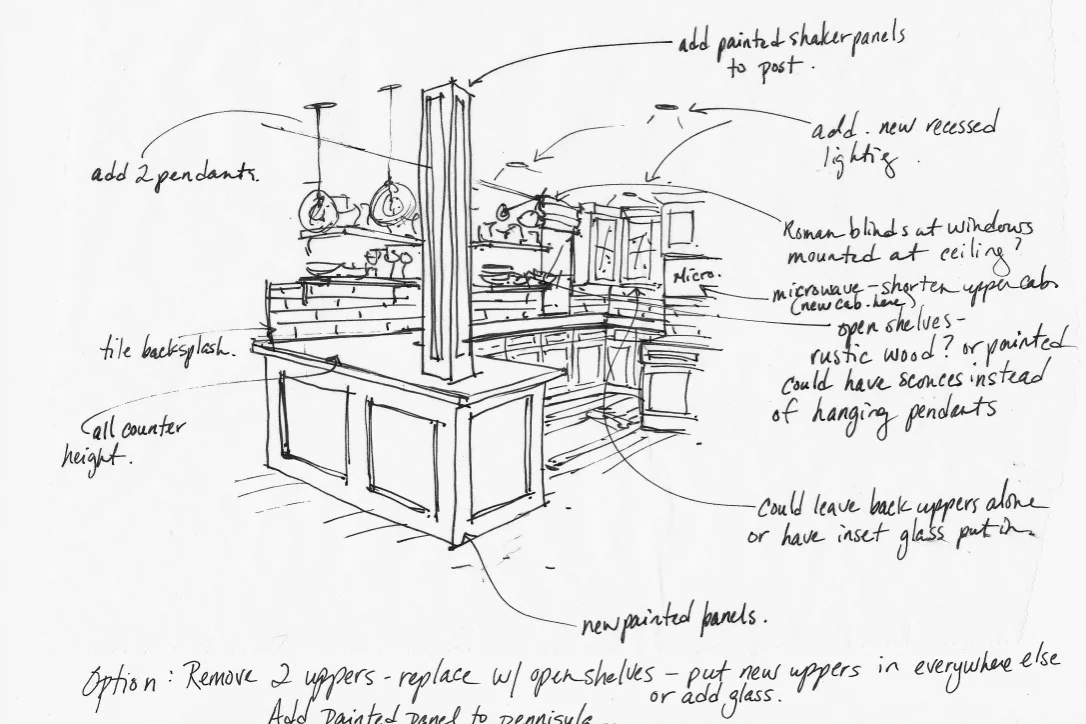 add painted shaker panels
to post.
add 2 pendants.
add. new recessed
lightig.
Roman blinds at windows
mounted at ceiling?
Micro.
microwave - shorten upper cab.
(new cab. here)
open shelves -
rustic wood? or painted
could have sconces instead
of hanging pendants
tile backsplash.
all counter
height.
could leave back uppers alone
or have inset glass put in.
new painted panels.
Option: Remove 2 uppers - replace w/ open shelves - put new uppers in everywhere else
or add glass.
Add painted panel to pennisula